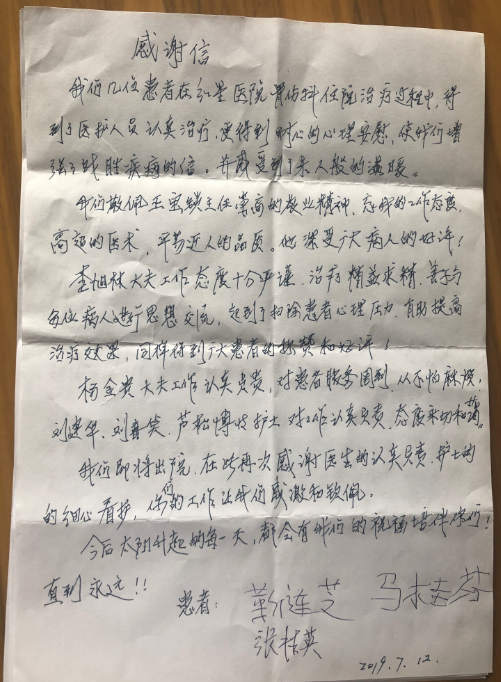 感谢信
我们几位患者在红星医院骨伤科住院治疗过程中，得
到了医护人员认真治疗，更得到了时心的心理安慰，使我们增
强了战胜疾病的信。并感受到了亲人般的温暖。
我们敬佩王宝锁主任崇高的敬业精神、忘我的工作态度、
高超的医术，平易近人的品质。他深受广大病人的好评！
李旭林大夫工作态度十分严谨，治疗精益求精，善于与
每位病人进行思想交流，起到了扫除患者心理压力，有助提高
治疗效果，同样得到广大患者的称赞和好评！
杨金贵大夫工作认真负责，对患者服务周到，从不怕麻烦，
刘建华、刘 芦松博士护士对工作认真负责、态度亲切和蔼。
我们即将出院，在此再次感谢医生的认真负责、护士的
的细心看护，你们的工作让我们感激和钦佩。
今后太阳升起的每一天，都会有我们的祝福陪伴你们！
直到永远！！
患者：靳莲芝 马桂芬
张桂英
2019.7.12.